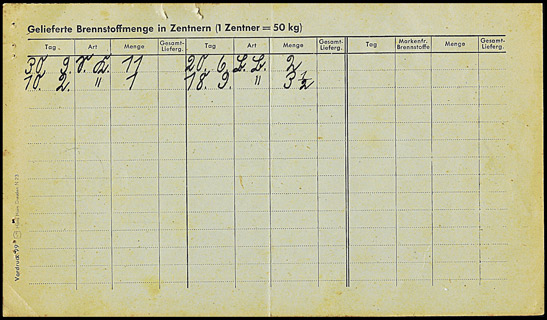 Gelieferte Brennstoffmenge in Zentnern (1 Zentner = 50 kg)
Tag Art Menge Gesamt-Lieferg. Tag Art Menge Gesamt-Lieferg. Tag Markenfr. Brennstoffe Menge Gesamt-Lieferg.
30. 9. 11 20. 6. 2
10. 2. " 1 18. 9. " 3 1/2